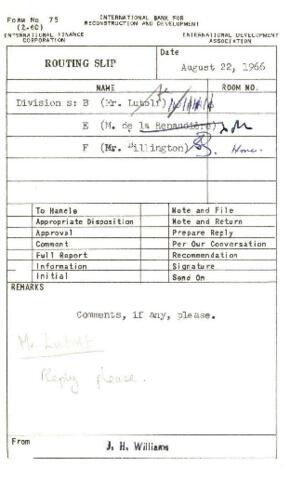 FORM No. 75
(2-60)
INTERNATIONAL BANK FOR
RECONSTRUCTION AND DEVELOPMENT
INTERNATIONAL FINANCE
CORPORATION
INTERNATIONAL DEVELOPMENT
ASSOCIATION
ROUTING SLIP
Date
August 22, 1966
NAME
ROOM NO.
Division s: B (Mr. Lutolf)
E (M. de la Renaudière)
F (Mr. Dillington) Home.
To Handle
Note and File
Appropriate Disposition
Note and Return
Approval
Prepare Reply
Comment
Per Our Conversation
Full Report
Recommendation
Information
Signature
Initial
Send On
REMARKS
Comments, if any, please.
Mr Lutolf
Reply please.
From
J. H. Williams